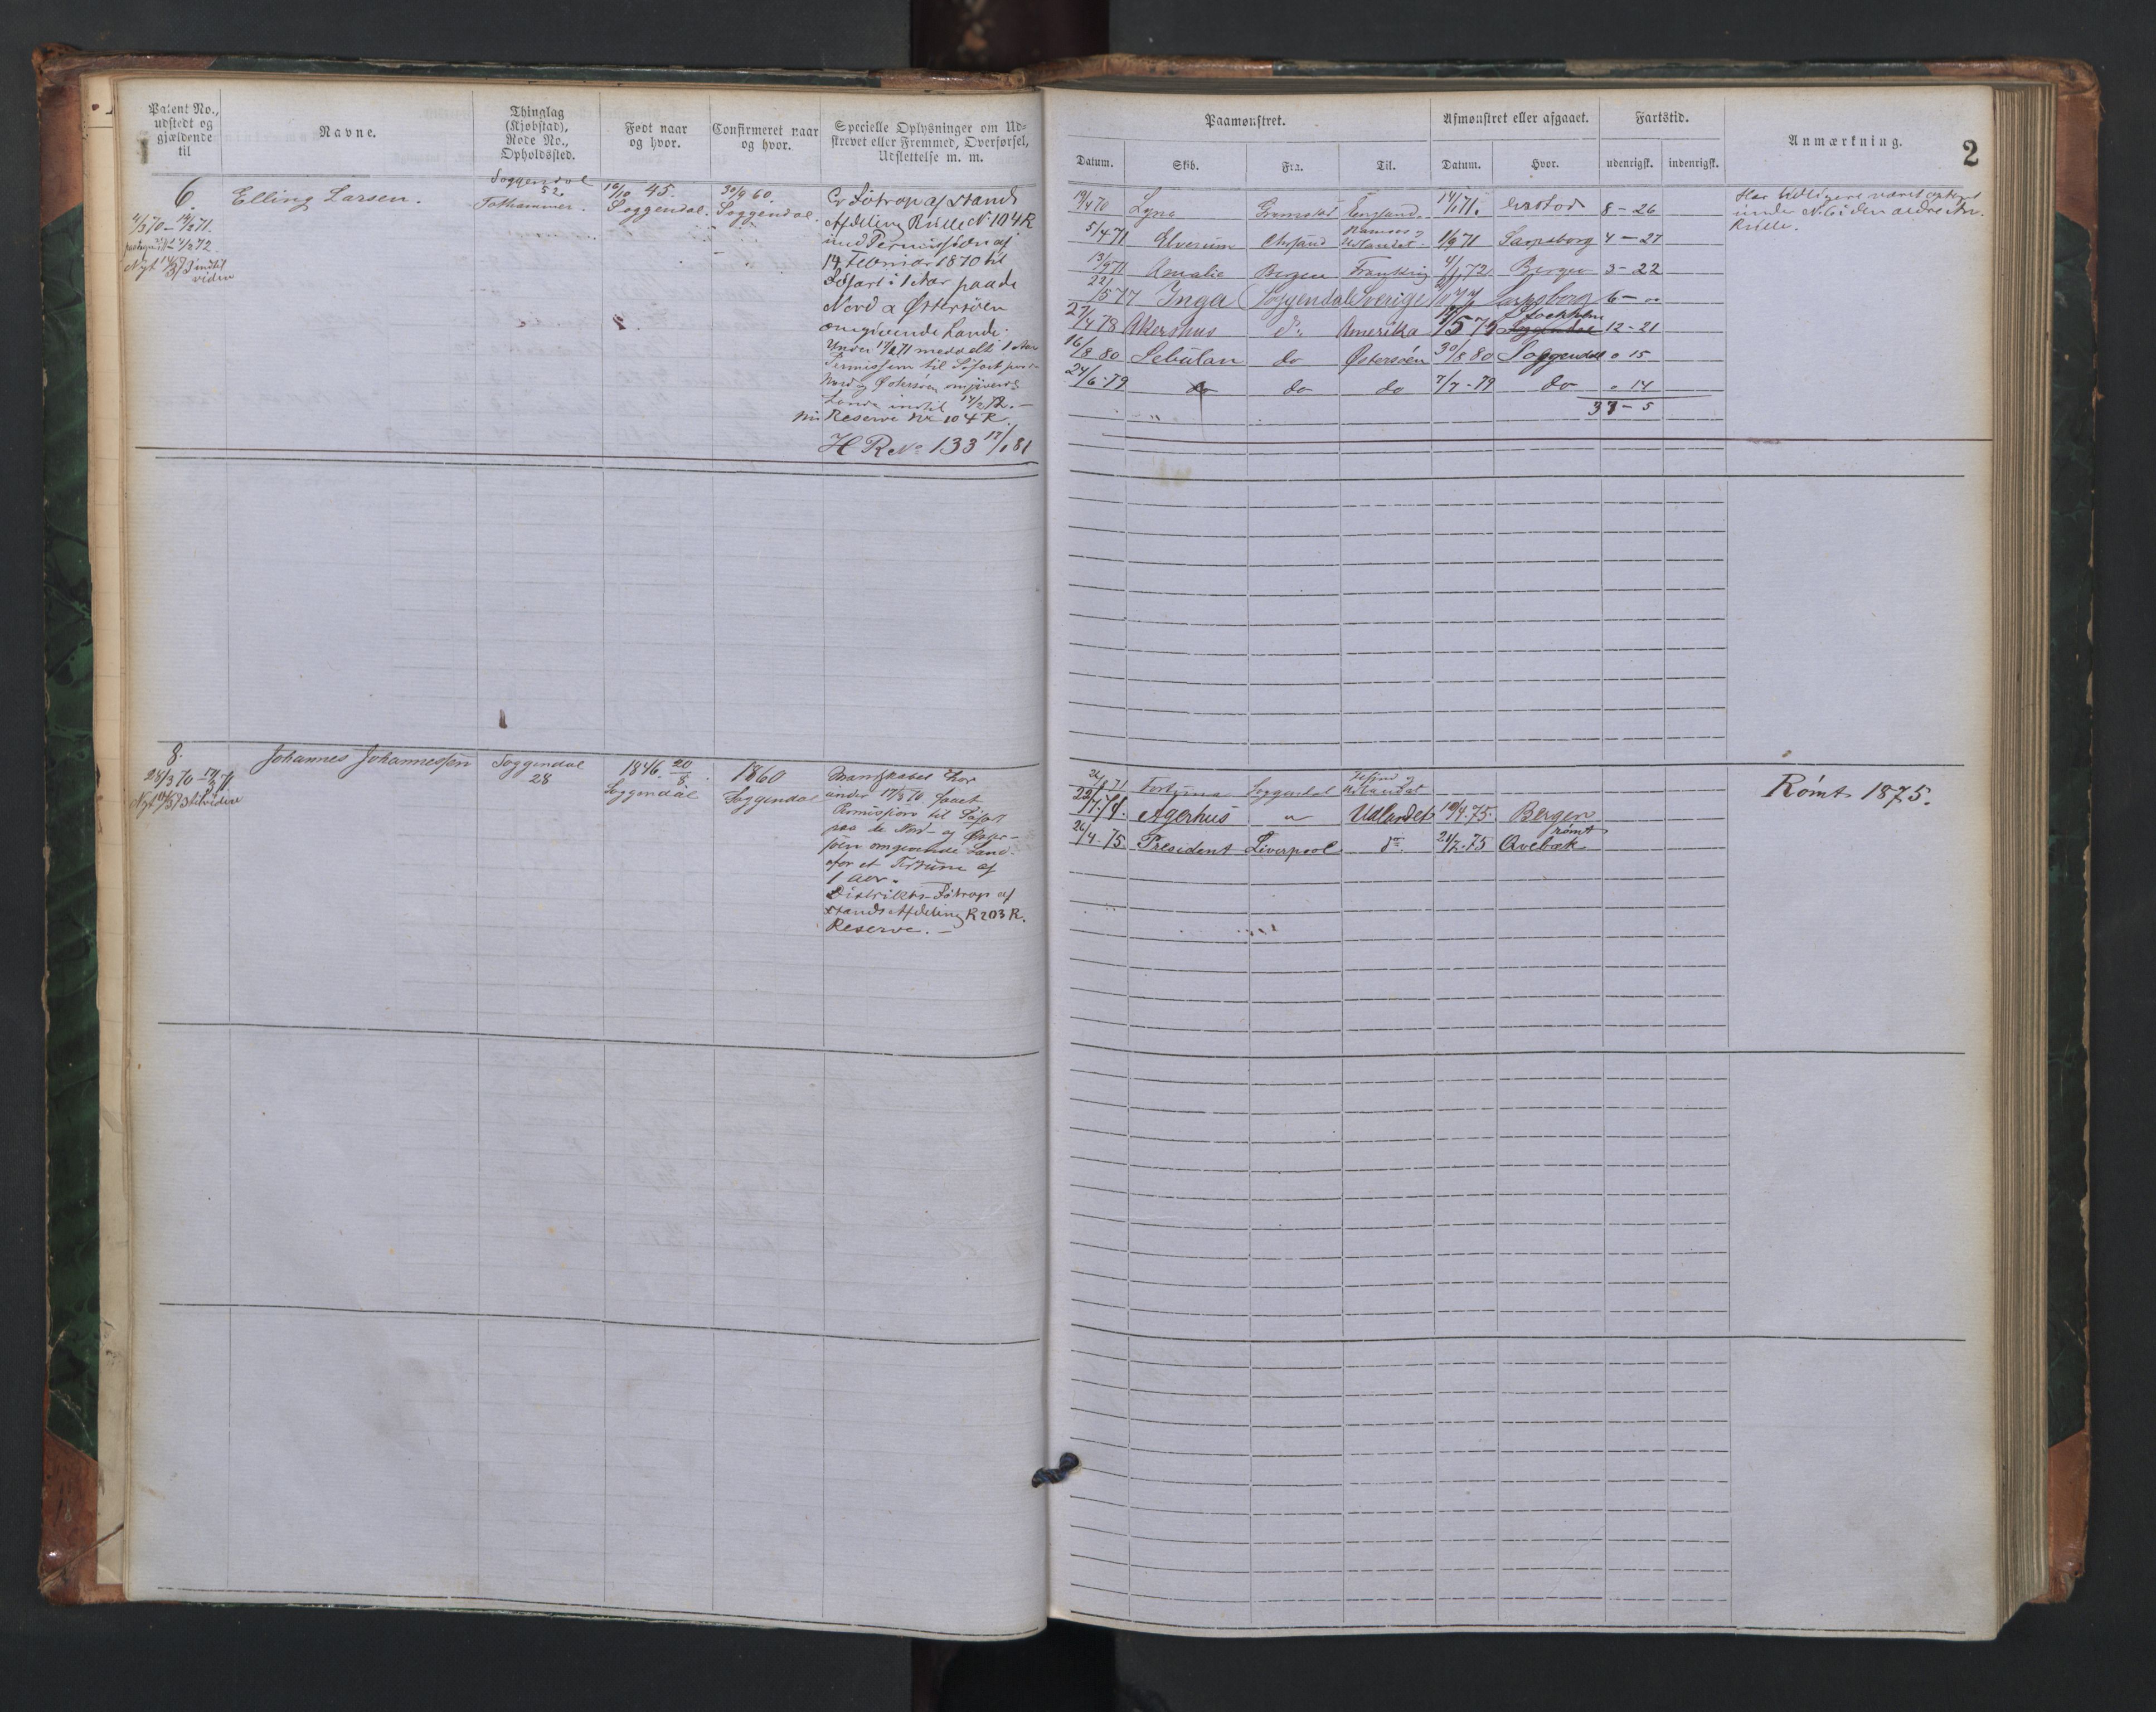 Patent No.,
udstedt og
gjældende
til
Navne.
Thinglag
(Kjøbstad),
Rode No.,
Opholdssted.
Født naar
og hvor.
Confirmeret naar
og hvor.
Specielle Oplysninger om Ud-
skrevet eller Fremmed, Overførsel,
Udslettelse m. m.
6.
Elling Larsen.
Soggendal
52.
16/10 45.
Soggendal.
30/9 60.
Soggendal.
Er Søtrop af stands
Afdeling Rulle No 104 R
med Permission af
14 Februar 1870 til
Søfart i 1 Aar paa de
Nord & Østersøen
omgivende Lande.
Under 17/2 71 meddelt 1 Aars
Permission til Søfart paa
Nord og Østersøen omgivende
Lande indtil 14/2 72. —
Reserve No 104 R.
H R No 133 17/1 81
8.
28/3 70
Johannes Johannessen
Soggendal
28
1846 20/8.
Soggendal
1860
Soggendal
Mandskabet har
under 17/3 70 faaet
Permission til Søfart
paa de Nord- og Øster-
søen omgivende Land-
for et Tidsrum af
1 Aar.
Distrikts-Søtrop af
stands Afdeling R 203 R.
Reserve. —
Paamønstret.
Afmønstret eller afgaaet.
Fartstid.
Anmærkning.
2
Datum.
Skib.
Fra.
Til.
Datum.
Hvor.
udenrigsk.
indenrigsk.
19/4 70 Lyna Grimstad England. 14/1 71. 8 - 26
Har tidligere været opført
under No 6 i den ældre An.
Rulle.
5/4 71 Elverum Chrsand Namsos og Udlandet. 1/9 71 Sarpsborg 4 - 27
13/9 71 Amalie Bergen Frankrig 4/1 72 Bergen 3 - 22
22/5 77 Inga Soggendal Sverige Sarpsborg 6 -
27/4 78 Akershus do Amerika 5 79 Stockholm Soggendal 12 - 21
16/8 80 Sebulan do Østersøen 30/8 80 Soggendal " 15
24/6 79 do do do 7/7 - 79 do " 14
37 - 5
26/1 71 Fortuna Soggendal Udlandet
Rømt 1875.
Agerhus " Udlandet 19/4 75. Bergen
26/4 75. President Liverpool do 21/7 75 Qvebæk rømt